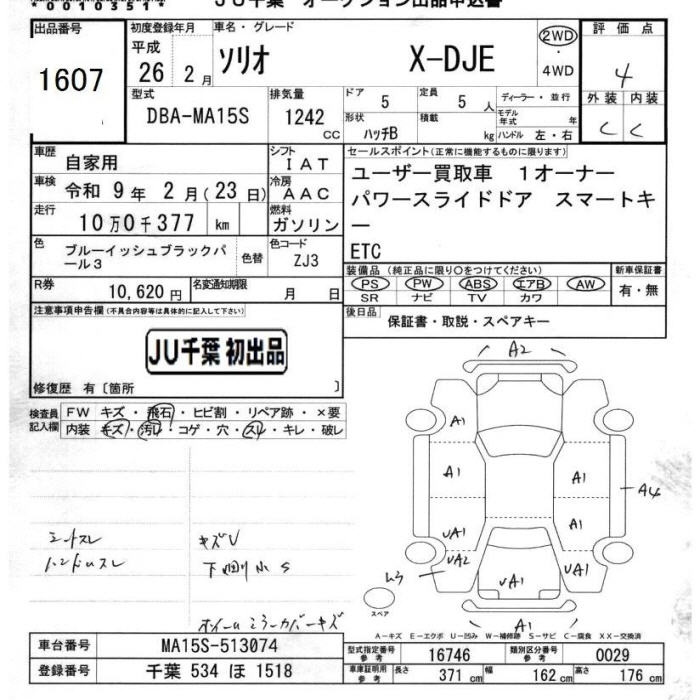 *0010351*
JU千葉 オークション出品申込書
出品番号 1607
初度登録年月 平成 26 2月
車名・グレード ソリオ X-DJE
2WD・4WD
評価点 4
外装 C 内装 C
型式 DBA-MA15S
排気量 1242 CC
ドア 5 定員 5 人
形状 ハッチB 積載 kg
ディーラー・並行
モデル年式 年
ハンドル 左・右
車歴 自家用
シフト IAT
車検 令和 9年 2月(23日)
冷房 AAC
走行 10万0千377 km
燃料 ガソリン
色 ブルーイッシュブラックパール3 色替
色コード ZJ3
R券 10,620円
名変通知期限 月 日
セールスポイント(正常に機能するものに限ります)
ユーザー買取車 1オーナー
パワースライドドア スマートキ
ー
ETC
装備品(純正品に限り○をつけてください)
PS PW ABS エアB AW
SR ナビ TV カワ
新車保証書 有・無
後日品 保証書・取説・スペアキー
注意事項申告欄(不具合内容等は具体的に記入して下さい)
JU千葉 初出品
修復歴 有〔箇所 〕
検査員記入欄
FW キズ・飛石・ヒビ割・リペア跡・×要
内装 キズ・汚れ・コゲ・穴・スレ・キレ・破レ
シートスレ キズU
ハンドルスレ 下廻り小S
ホイール ミラーカバーキズ
A2
A1
A1 A1
A4
A1
UA1 UA1
UA2 UA1
UA1
スペア
A-キズ E-エクボ U-凹み W-補修跡 S-サビ C-腐食 XX-交換済
車台番号 MA15S-513074
登録番号 千葉 534 ほ 1518
型式指定番号 参考 16746 類別区分番号 参考 0029
車庫証明用 参考 長さ 371 cm 幅 162 cm 高さ 176 cm